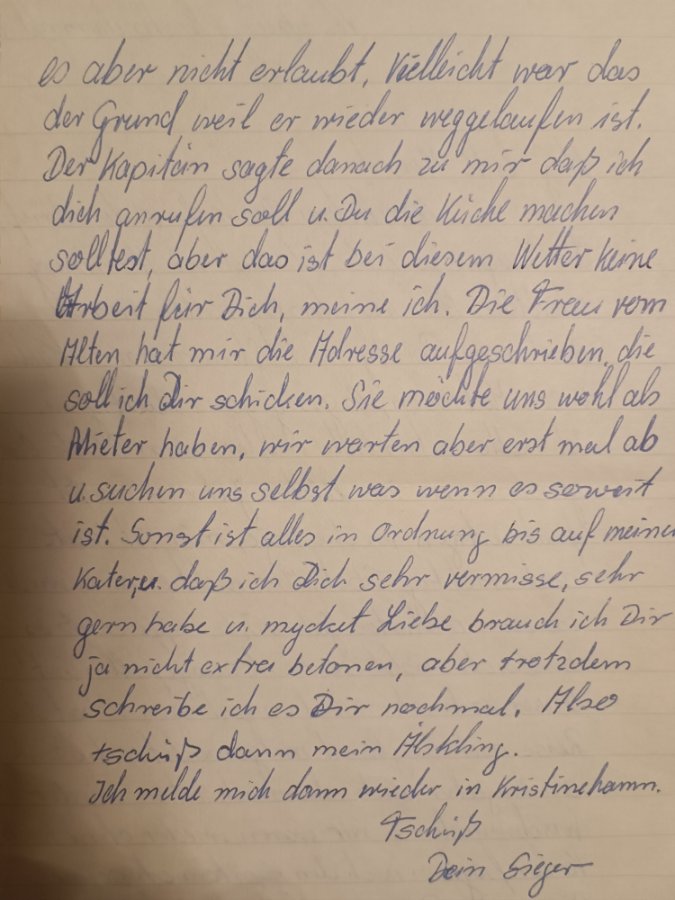 es aber nicht erlaubt. Vielleicht war das
der Grund, weil er wieder weggelaufen ist.
Der Kapitän sagte danach zu mir daß ich
dich anrufen soll u. Du die Küche machen
solltest, aber das ist bei diesem Wetter keine
Arbeit für Dich, meine ich. Die Frau vom
Alten hat mir die Adresse aufgeschrieben, die
soll ich Dir schicken. Sie möchte uns wohl als
Mieter haben, wir warten aber erst mal ab
u. suchen uns selbst was wenn es soweit
ist. Sonst ist alles in Ordnung bis auf meinen
Kater, u. daß ich Dich sehr vermisse, sehr
gern habe u. mycket Liebe brauch ich Dir
ja nicht extra betonen, aber trotzdem
schreibe ich es Dir nochmal. Also
tschüß dann mein Älskling.
Ich melde mich dann wieder in Kristinehamn.
Tschüß
Dein Sieger